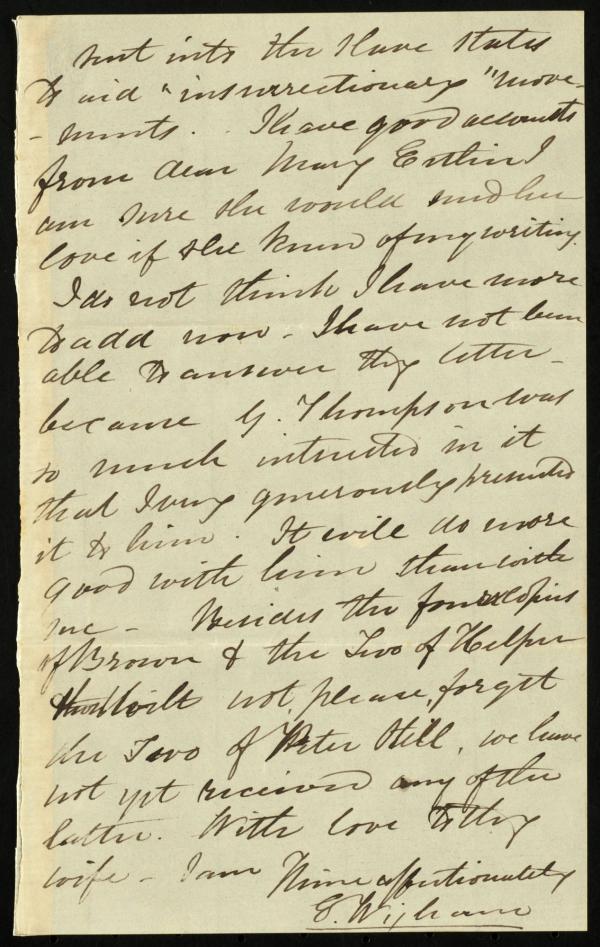 sent into the Slave States
to aid "insurrectionary" move-
-ments. . I have good accounts
from dear Mary Estlin I
am sure she would send her
love if she knew of my writing.
I do not think I have more
to add now - I have not been
able to answer thy letter -
because G. Thompson was
so much interested in it
that I very generously presented
it to him. It will do more
good with him than with
me - Besides the four copies
of Brown & the Two of Helper
thou wilt not, please, forget
the Two of Peter Still, we have
not yet received any of the
latter. With love to thy
wife - I am Thine affectionately
E. Wigham